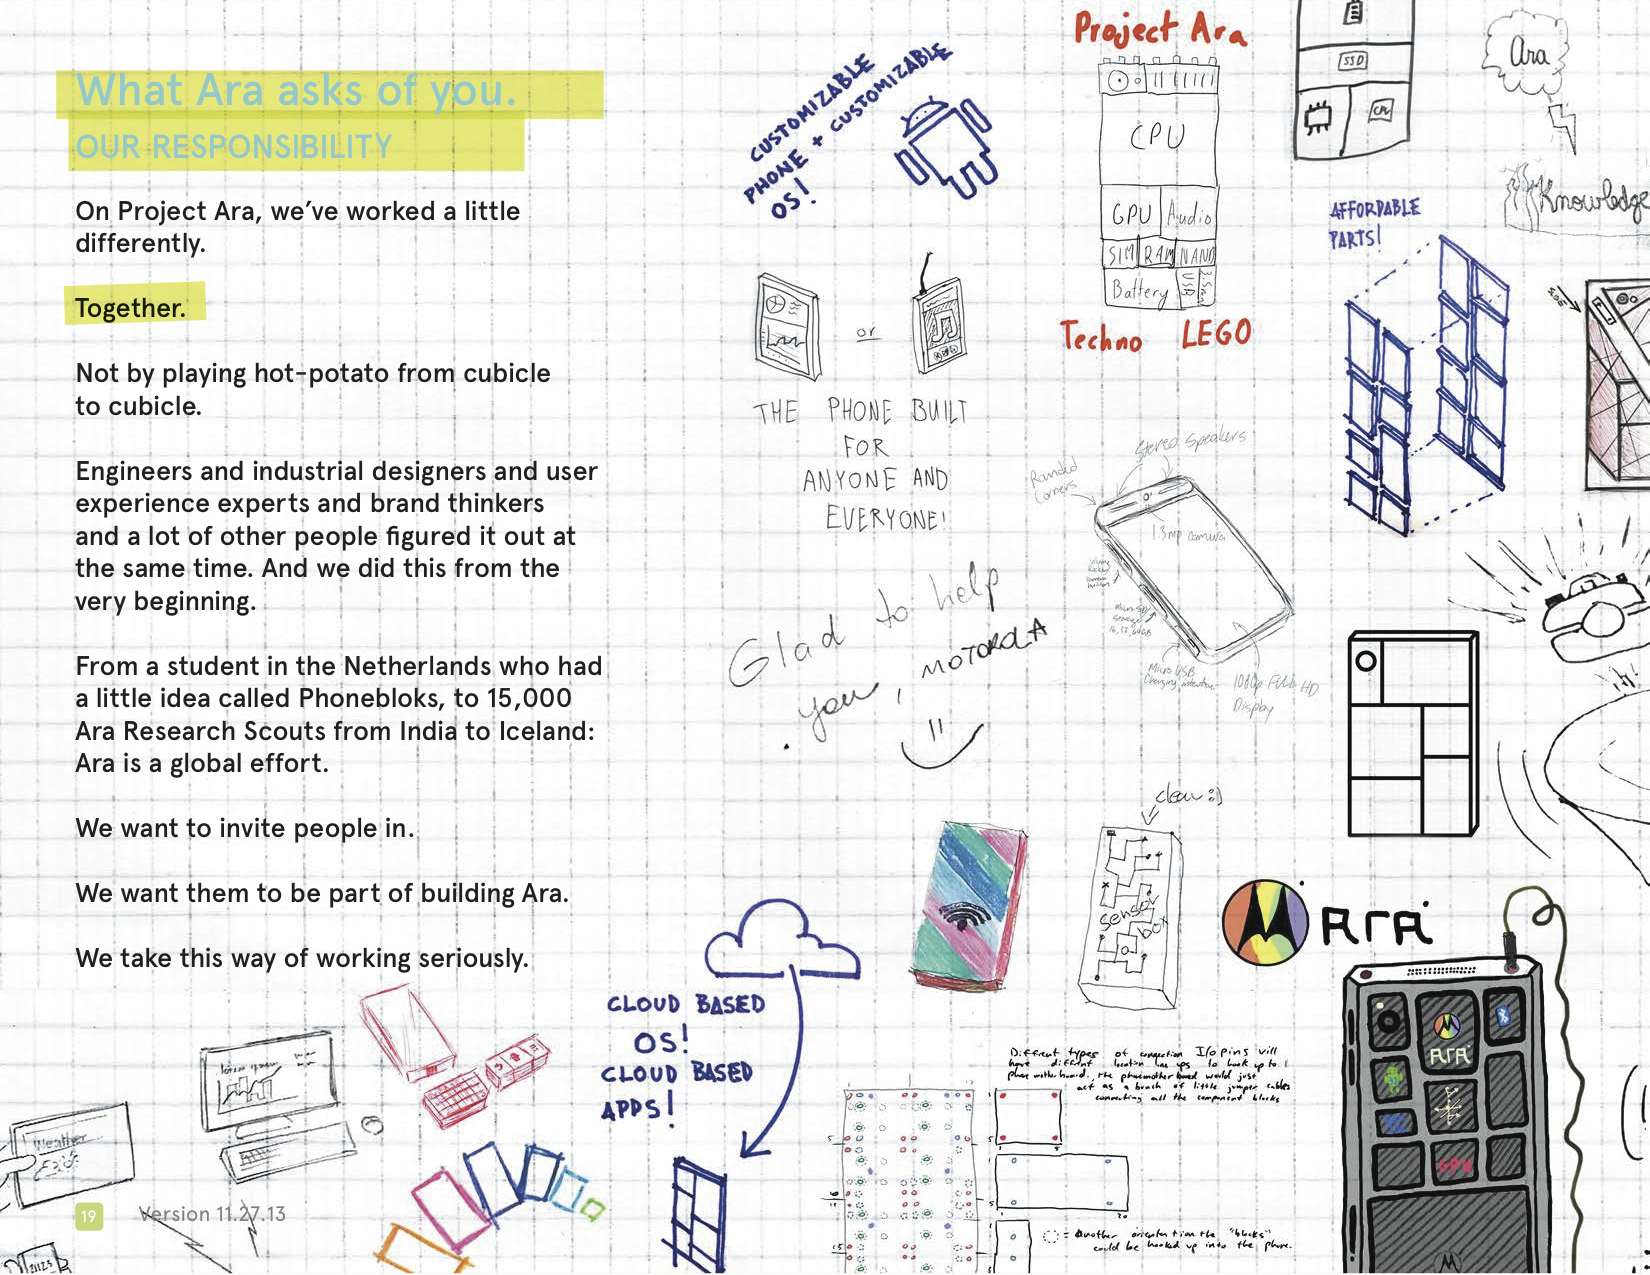 What Ara asks of you.
OUR RESPONSIBILITY
On Project Ara, we’ve worked a little
differently.
Together.
Not by playing hot-potato from cubicle
to cubicle.
Engineers and industrial designers and user
experience experts and brand thinkers
and a lot of other people figured it out at
the same time. And we did this from the
very beginning.
From a student in the Netherlands who had
a little idea called Phonebloks, to 15,000
Ara Research Scouts from India to Iceland:
Ara is a global effort.
We want to invite people in.
We want them to be part of building Ara.
We take this way of working seriously.
19
Version 11.27.13
Weather
CUSTOMIZABLE
PHONE + CUSTOMIZABLE
OS!
Project Ara
CPU
GPU Audio
SIM RAM NAND
Battery USB
Techno LEGO
SSD
Ara
Knowledge
AFFORDABLE
PARTS!
or
THE PHONE BUILT
FOR
ANYONE AND
EVERYONE!
Stereo Speakers
Rounded
Corners
1.3mp camera
Micro USB
Charging
1080p Full HD
Display
Glad to help
you, MOTOROLA
clear :)
sensor
box
ARA
ARA
GPU
CLOUD BASED
OS!
CLOUD BASED
APPS!
Different types of connection I/o Pins will
have different location line ups to hook up to
phone motherboard. the phonemotherboard would just
act as a bunch of little jumper cables
connecting all the component blocks
= Another orientation the "blocks"
could be hooked up into the phone.